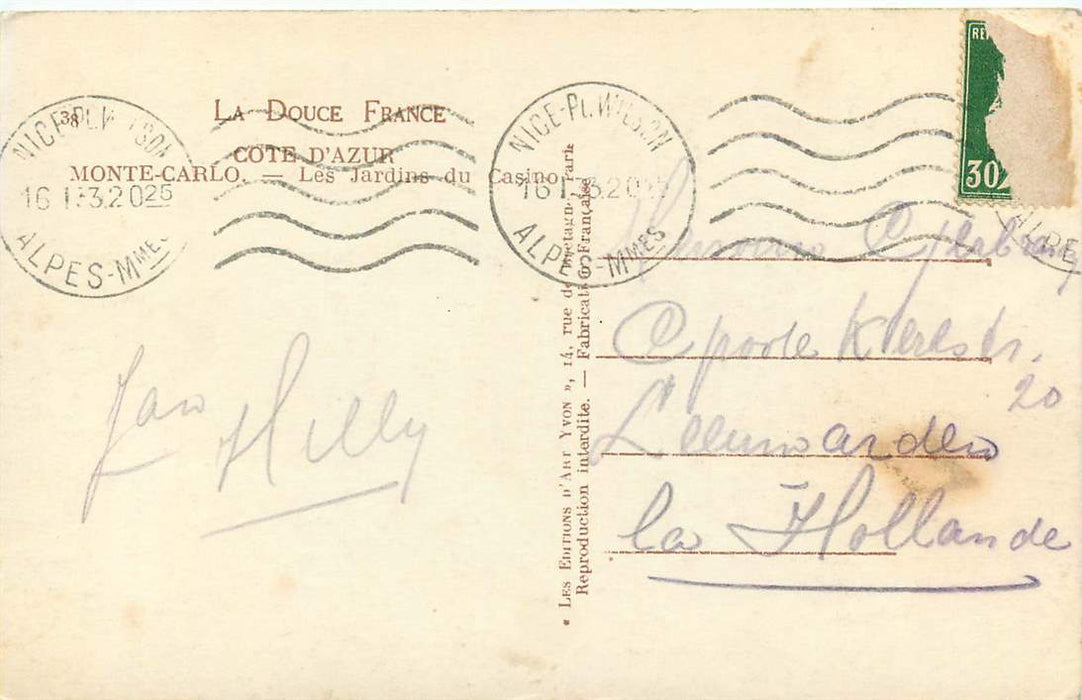 38
LA DOUCE FRANCE
CÔTE D'AZUR
MONTE-CARLO. — Les Jardins du Casino.
NICE-PL.WILSON
16 I-32 025
ALPES-MMES
NICE-PL.WILSON
16 I-32 025
ALPES-MMES
RE
30
ALPE
Jan
Hilly
« LES EDITIONS D'ART YVON », 14, rue de Bretagne, Paris
Reproduction interdite. — Fabrication Française
20
Leeuwarden
la Hollande